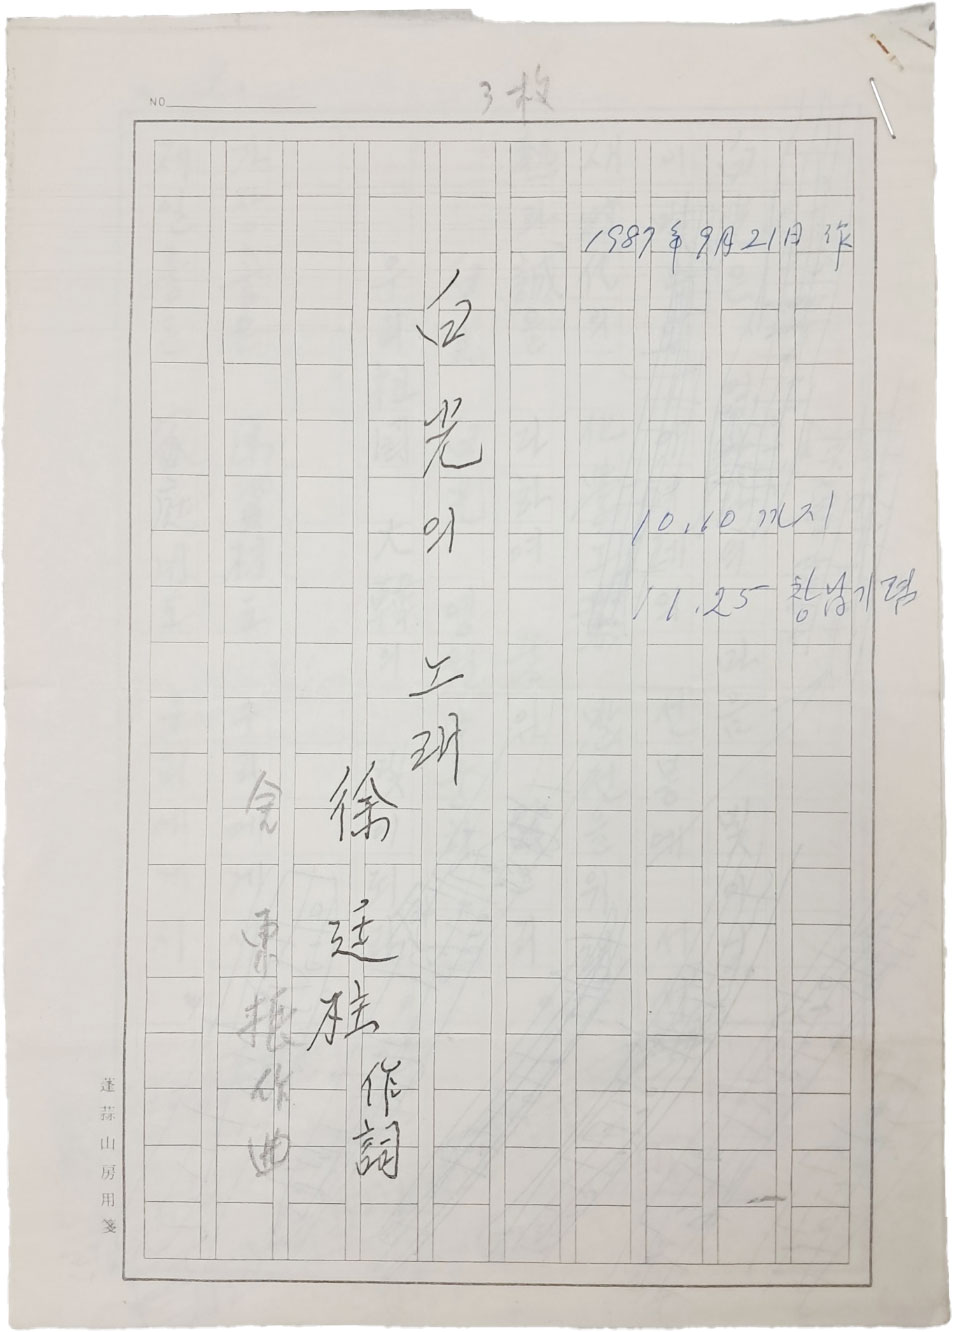 NO
3枚
1987年 9月 21日 作
10.10 까지
11.25 창남기념
白光의 노래
徐廷柱 作詞
金東振 作曲
蓬蒜山房用箋